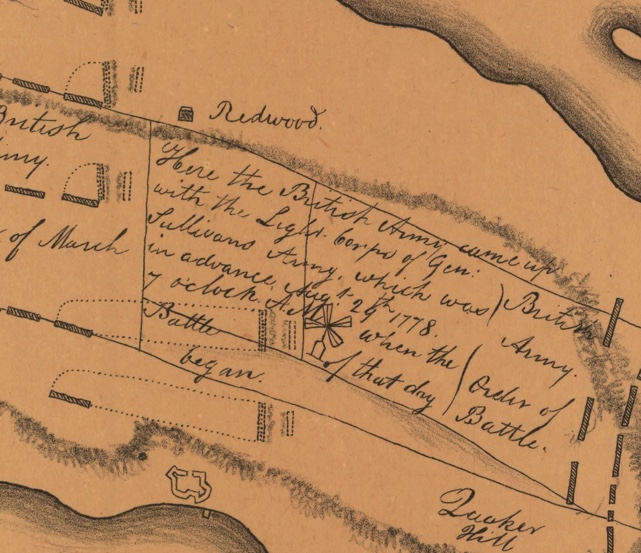 Redwood.
British
Army.
of March
Here the British Army came up
with the Light Corps of Gen:
Sullivans Army, which was
in advance, Aug.t 29th 1778.
7 oclock A.M. when the
Battle of that day
began.
British
Army.
Order of
Battle.
Quaker
Hill